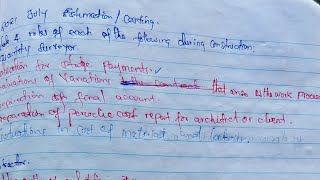 2021 July Estimation / Costing.
4 roles of each of the following during construction:
Quantity Surveyor
Valuation for stage Payments.
Valuations of Variations that arise as the work process
Preparation of final account.
Preparation of periodic cost report for architect or client.
in cost of material and labour